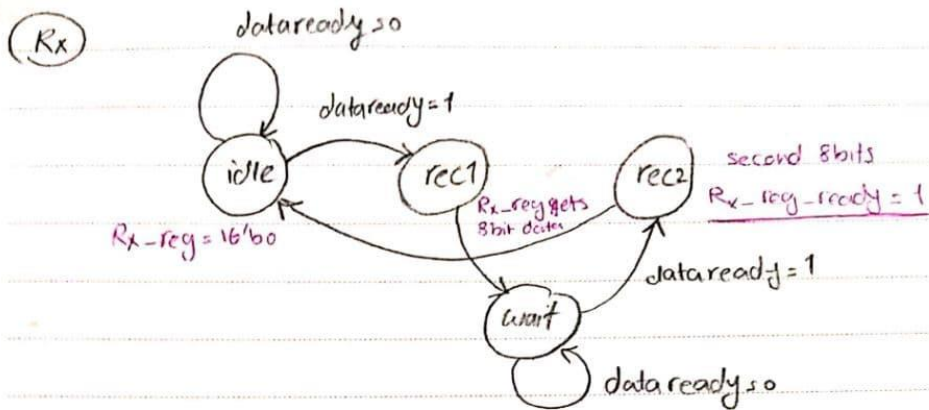 Rx
dataready=0
dataready=1
idle
rec1
rec2
second 8bits
Rx_reg_ready=1
Rx_reg=16'b0
Rx_reg gets
8bit data
dataready=1
wait
dataready=0